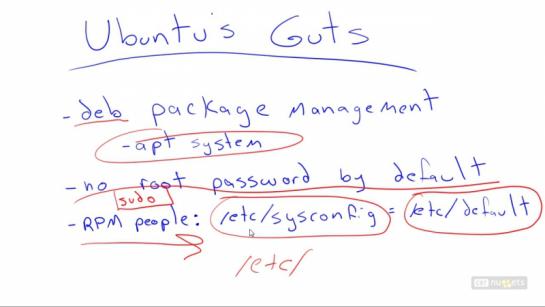 Ubuntu's Guts
- deb package management
- apt system
- no root password by default
sudo
- RPM people: /etc/sysconfig = /etc/default
/etc/
cbt nuggets